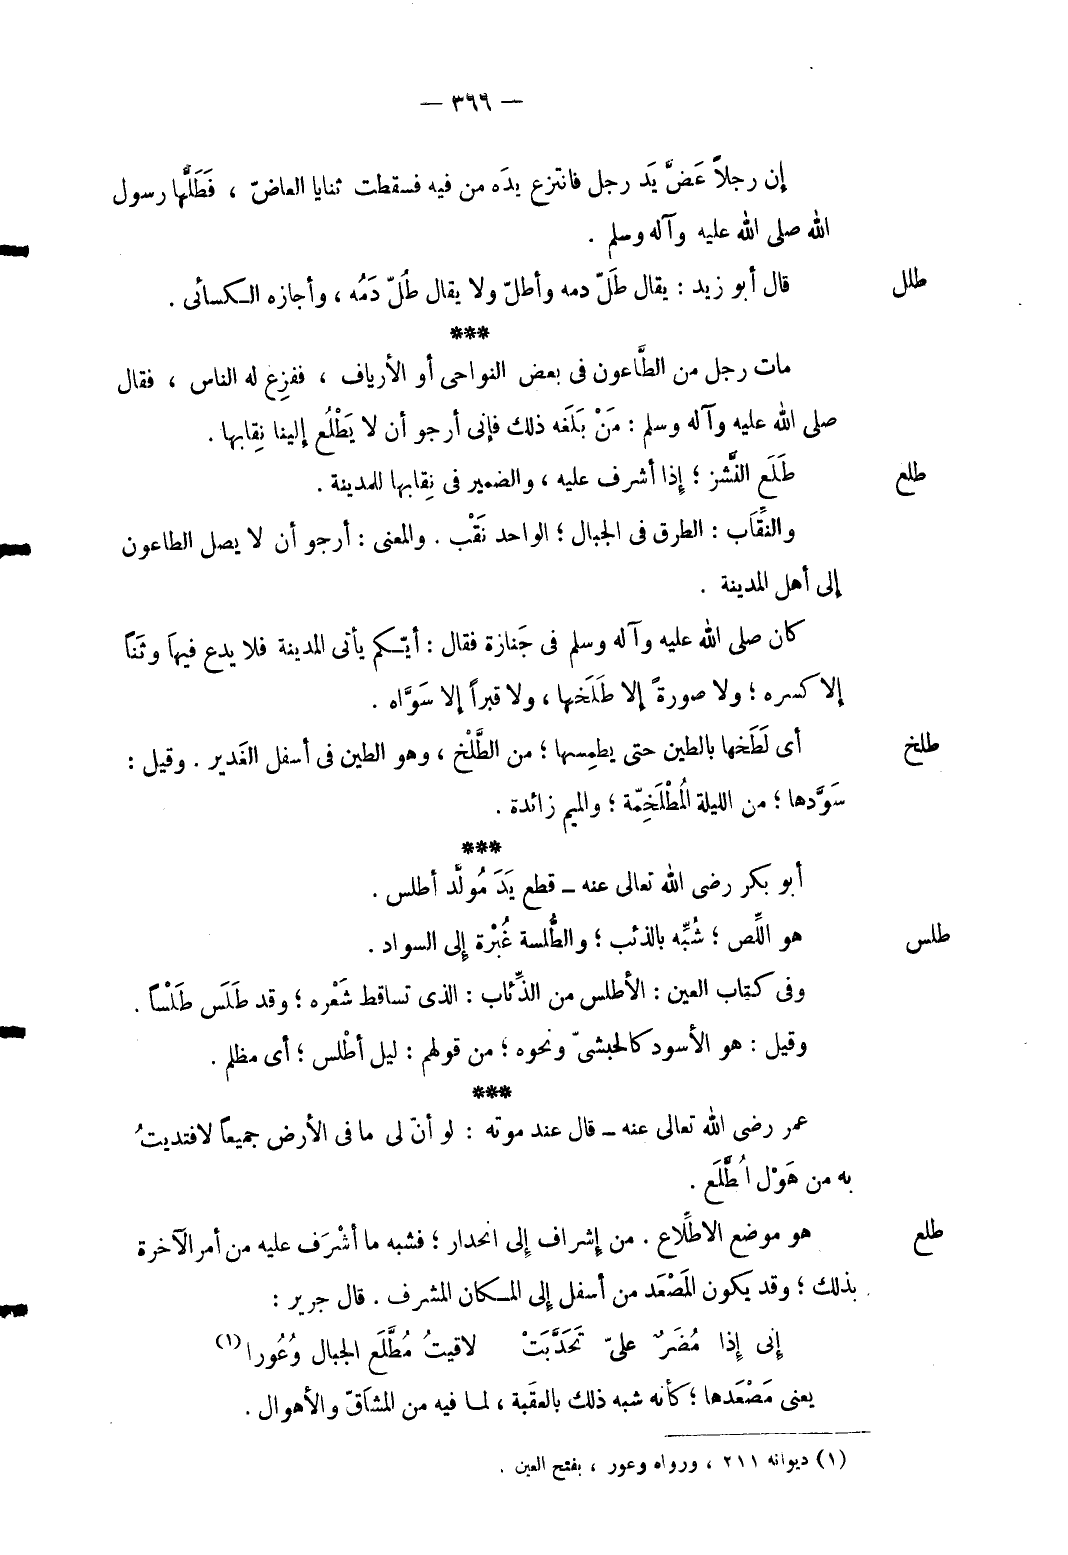 — ٣٦٦ —
إن رجلاً عَضَّ يَد رجل فانتزع يدَه من فيه فسقطت ثنايا العاضّ ، فَطَلَّها رسول
الله صلى الله عليه وآله وسلم .
طلل قال أبو زيد : يقال طَلّ دمه وأطلّ ولا يقال طُلّ دَمُه ، وأجازه الكسائى .
***
مات رجل من الطَّاعون فى بعض النواحى أو الأرياف ، ففزِع له الناس ، فقال
صلى الله عليه وآله وسلم : مَنْ بَلَغه ذلك فإنى أرجو أن لا يَطْلُع إلينا نِقابها .
طلع طَلَع النَّشز ؛ إذا أشرف عليه ، والضمير فى نِقابها للمدينة .
والنِّقاَب : الطرق فى الجبال ؛ الواحد نَقْب . والمعنى : أرجو أن لا يصل الطاعون
إلى أهل المدينة .
كان صلى الله عليه وآله وسلم فى جَنازة فقال : أيّكم يأتى المدينة فلا يدع فيهاَ وثَناً
إلا كسره ؛ ولا صورةً إلا طَلَخها ، ولا قبراً إلا سَوَّاه .
طلخ أى لَطَخها بالطين حتى يطمِسها ؛ من الطَّلْخ ، وهو الطين فى أسفل الغَدير . وقيل :
سَوَّدها ؛ من الليلة المُطْلَخِمّة ؛ والميم زائدة .
***
أبو بكر رضى الله تعالى عنه ــ قطع يَدَ مُولَّد أطلس .
طلس هو اللِّص ؛ شُبِّه بالذئب ؛ والطُّلسة غُبْرة إلى السواد .
وفى كتاب العين : الأطلس من الذِّئاب : الذى تساقط شَعْره ؛ وقد طَلَس طَلْساً .
وقيل : هو الأسود كالحبشىّ ونحوه ؛ من قولهم : ليل أطْلس ؛ أى مظلم .
***
عمر رضى الله تعالى عنه ــ قال عند موته : لو أنّ لى ما فى الأرض جميعاً لافتديتُ
به من هَوْل اُطَّلَع .
طلع هو موضع الاطِّلاع . من إشراف إلى انحدار ؛ فشبه ما أشْرَف عليه من أمر الآخرة
بذلك ؛ وقد يكون المَصْعَد من أسفل إلى المكان المشرف . قال جرير :
إنى إذا مُضَرٌ علىّ تَحَدَّبَتْ لاقيتُ مُطَّلَع الجبال وُعُورا (١)
يعنى مَصْعَدها ؛ كأنه شبه ذلك بالعقَبة ، لما فيه من المشاَقّ والأهوال .
(١) ديوانه ٢١١ ، ورواه وعور ، بفتح العين .